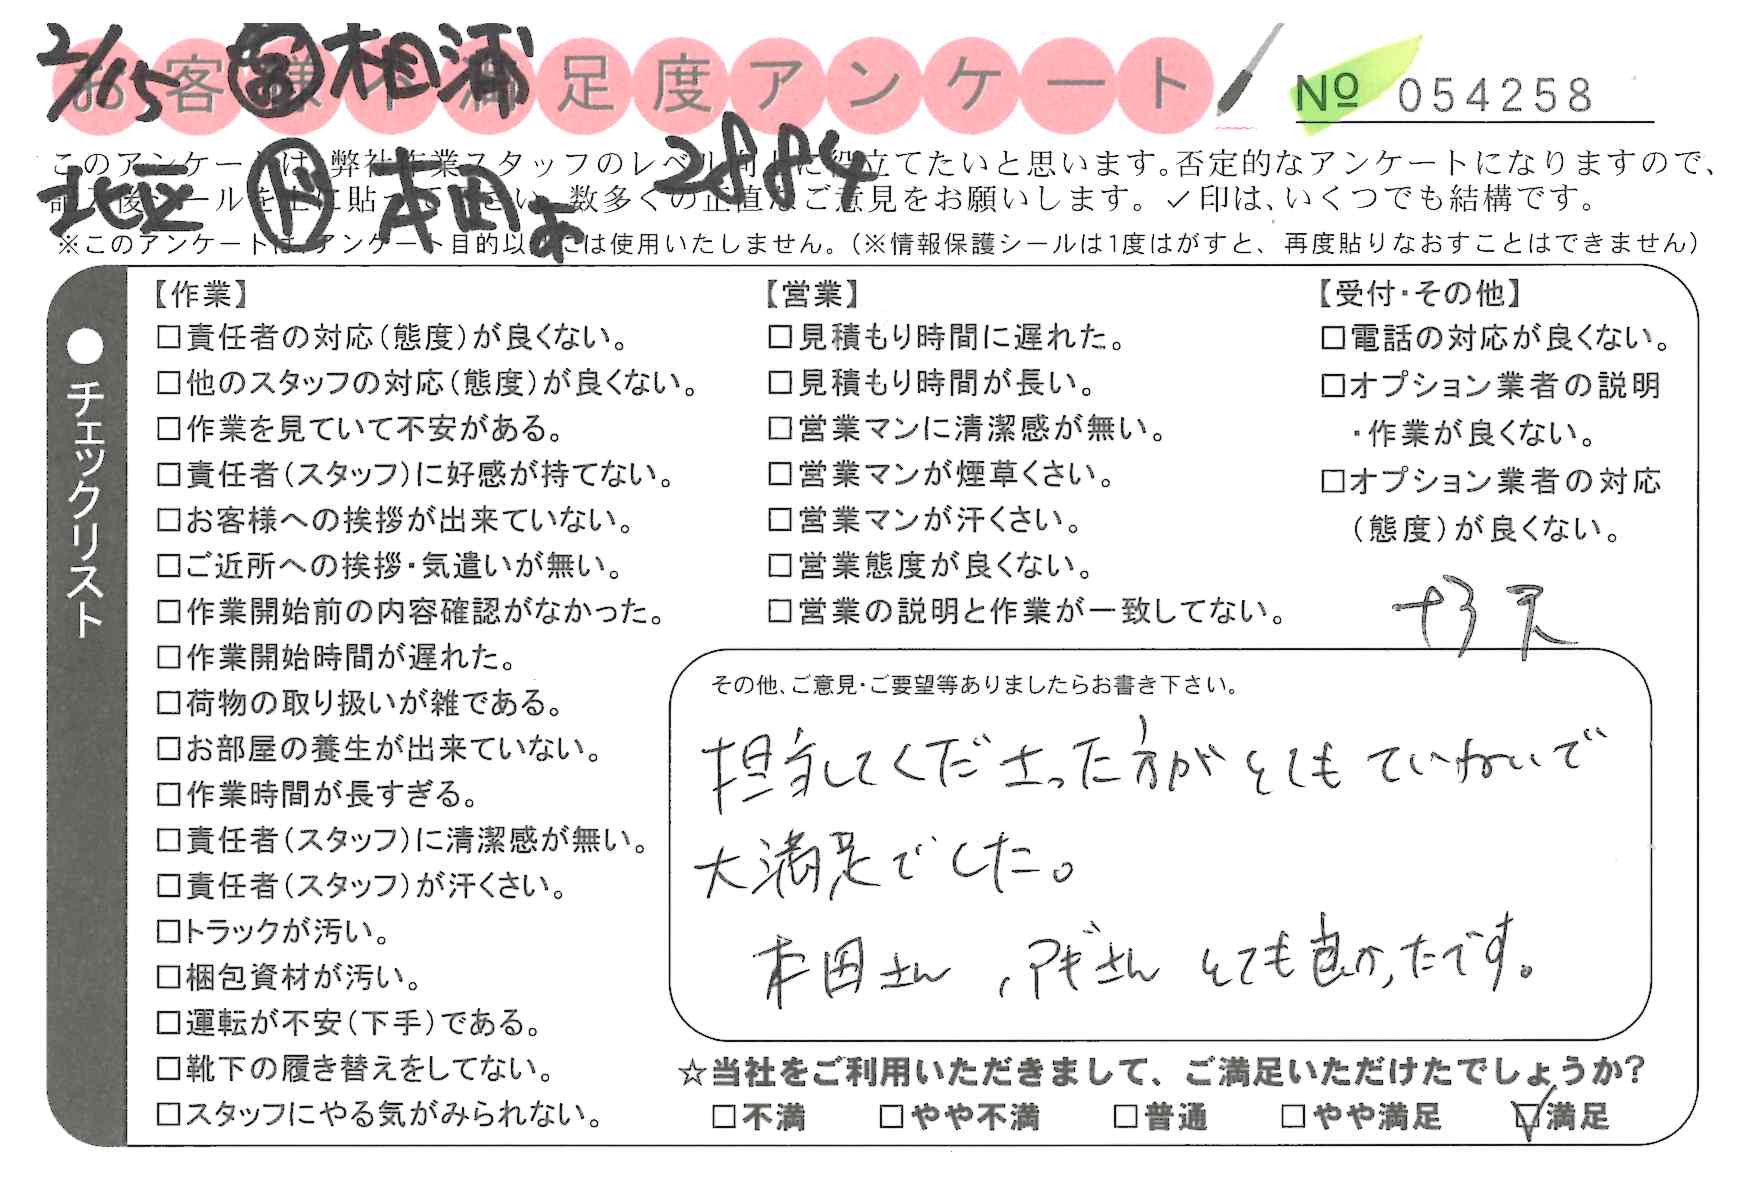 2/15 営 相浦
お客様不満足度アンケート
№ 054258
北区 ド 本田 2884
このアンケートは、弊社作業スタッフのレベル向上に役立てたいと思います。否定的なアンケートになりますので、
記入後シールを上に貼って下さい。数多くの正直なご意見をお願いします。✓印は、いくつでも結構です。
※このアンケートは、アンケート目的以外には使用いたしません。（※情報保護シールは1度はがすと、再度貼りなおすことはできません）
●チェックリスト
【作業】
□責任者の対応（態度）が良くない。
□他のスタッフの対応（態度）が良くない。
□作業を見ていて不安がある。
□責任者（スタッフ）に好感が持てない。
□お客様への挨拶が出来ていない。
□ご近所への挨拶・気遣いが無い。
□作業開始前の内容確認がなかった。
□作業開始時間が遅れた。
□荷物の取り扱いが雑である。
□お部屋の養生が出来ていない。
□作業時間が長すぎる。
□責任者（スタッフ）に清潔感が無い。
□責任者（スタッフ）が汗くさい。
□トラックが汚い。
□梱包資材が汚い。
□運転が不安（下手）である。
□靴下の履き替えをしてない。
□スタッフにやる気がみられない。
【営業】
□見積もり時間に遅れた。
□見積もり時間が長い。
□営業マンに清潔感が無い。
□営業マンが煙草くさい。
□営業マンが汗くさい。
□営業態度が良くない。
□営業の説明と作業が一致してない。
【受付・その他】
□電話の対応が良くない。
□オプション業者の説明
・作業が良くない。
□オプション業者の対応
（態度）が良くない。
その他、ご意見・ご要望等ありましたらお書き下さい。
担当してくださった方がとてもていねいで
大満足でした。
本田さん、アギさん とても良かったです。
☆当社をご利用いただきまして、ご満足いただけたでしょうか？
□不満 □やや不満 □普通 □やや満足 ☑満足